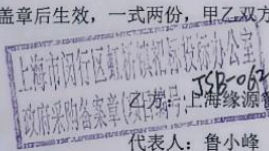 盖章后生效，一式两份，甲乙双方
上海市闵行区虹桥镇招标投标办公室
政府采购备案章(项目编号:
JSB-062
乙方:上海缘源
代表人:鲁小峰